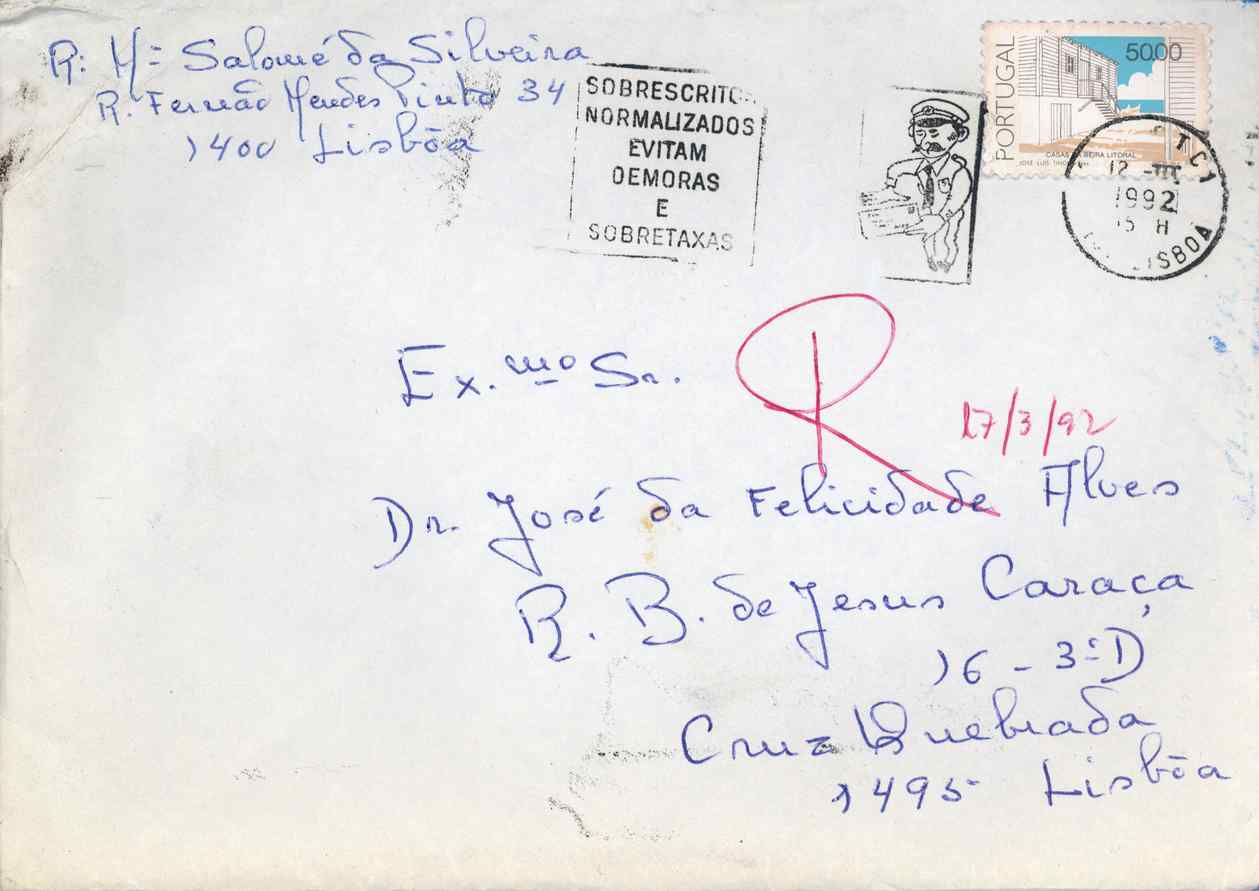 R: Mª Salomé da Silveira
R. Fernão Mendes Pinto 34
1400 Lisbôa
SOBRESCRITO
NORMALIZADOS
EVITAM
DEMORAS
E
SOBRETAXAS
PORTUGAL
50.00
CASAS DA BEIRA LITORAL
JOSÉ LUIS TINOCO
T.C1
12 -III
1992
15 H
LISBOA
Ex.mo Sr.
R
17/3/92
Dr. José da Felicidade Alves
R. B. de Jesus Caraça
16 - 3º D
Cruz Quebrada
1495 Lisbôa